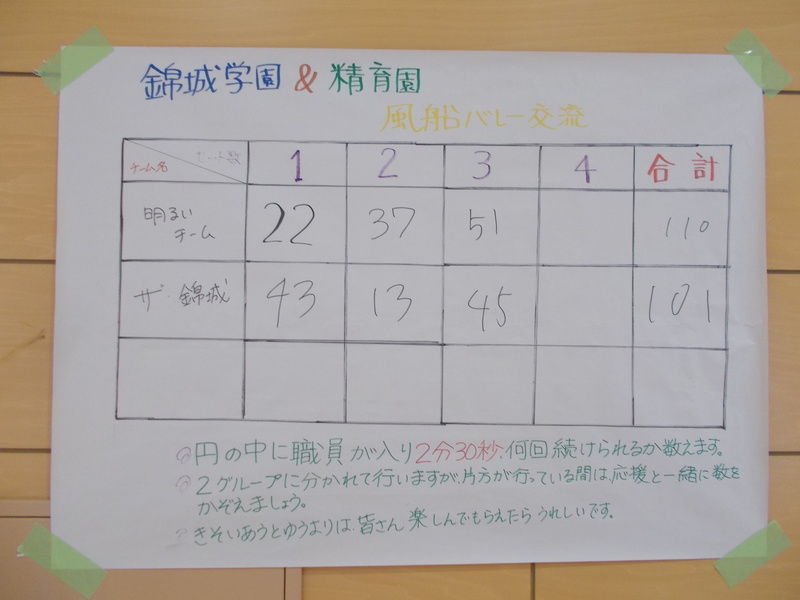 錦城学園 & 精育園
風船バレー交流
セット数
チーム名 1 2 3 4 合計
明るい
チーム 22 37 51 110
ザ・錦城 43 13 45 101
◎円の中に職員が入り2分30秒、何回続けられるか数えます。
◎2グループに分かれて行いますが、片方が行っている間は、応援と一緒に数を
かぞえましょう。
きそいあうとゆうよりは、皆さん楽しんでもらえたらうれしいです。